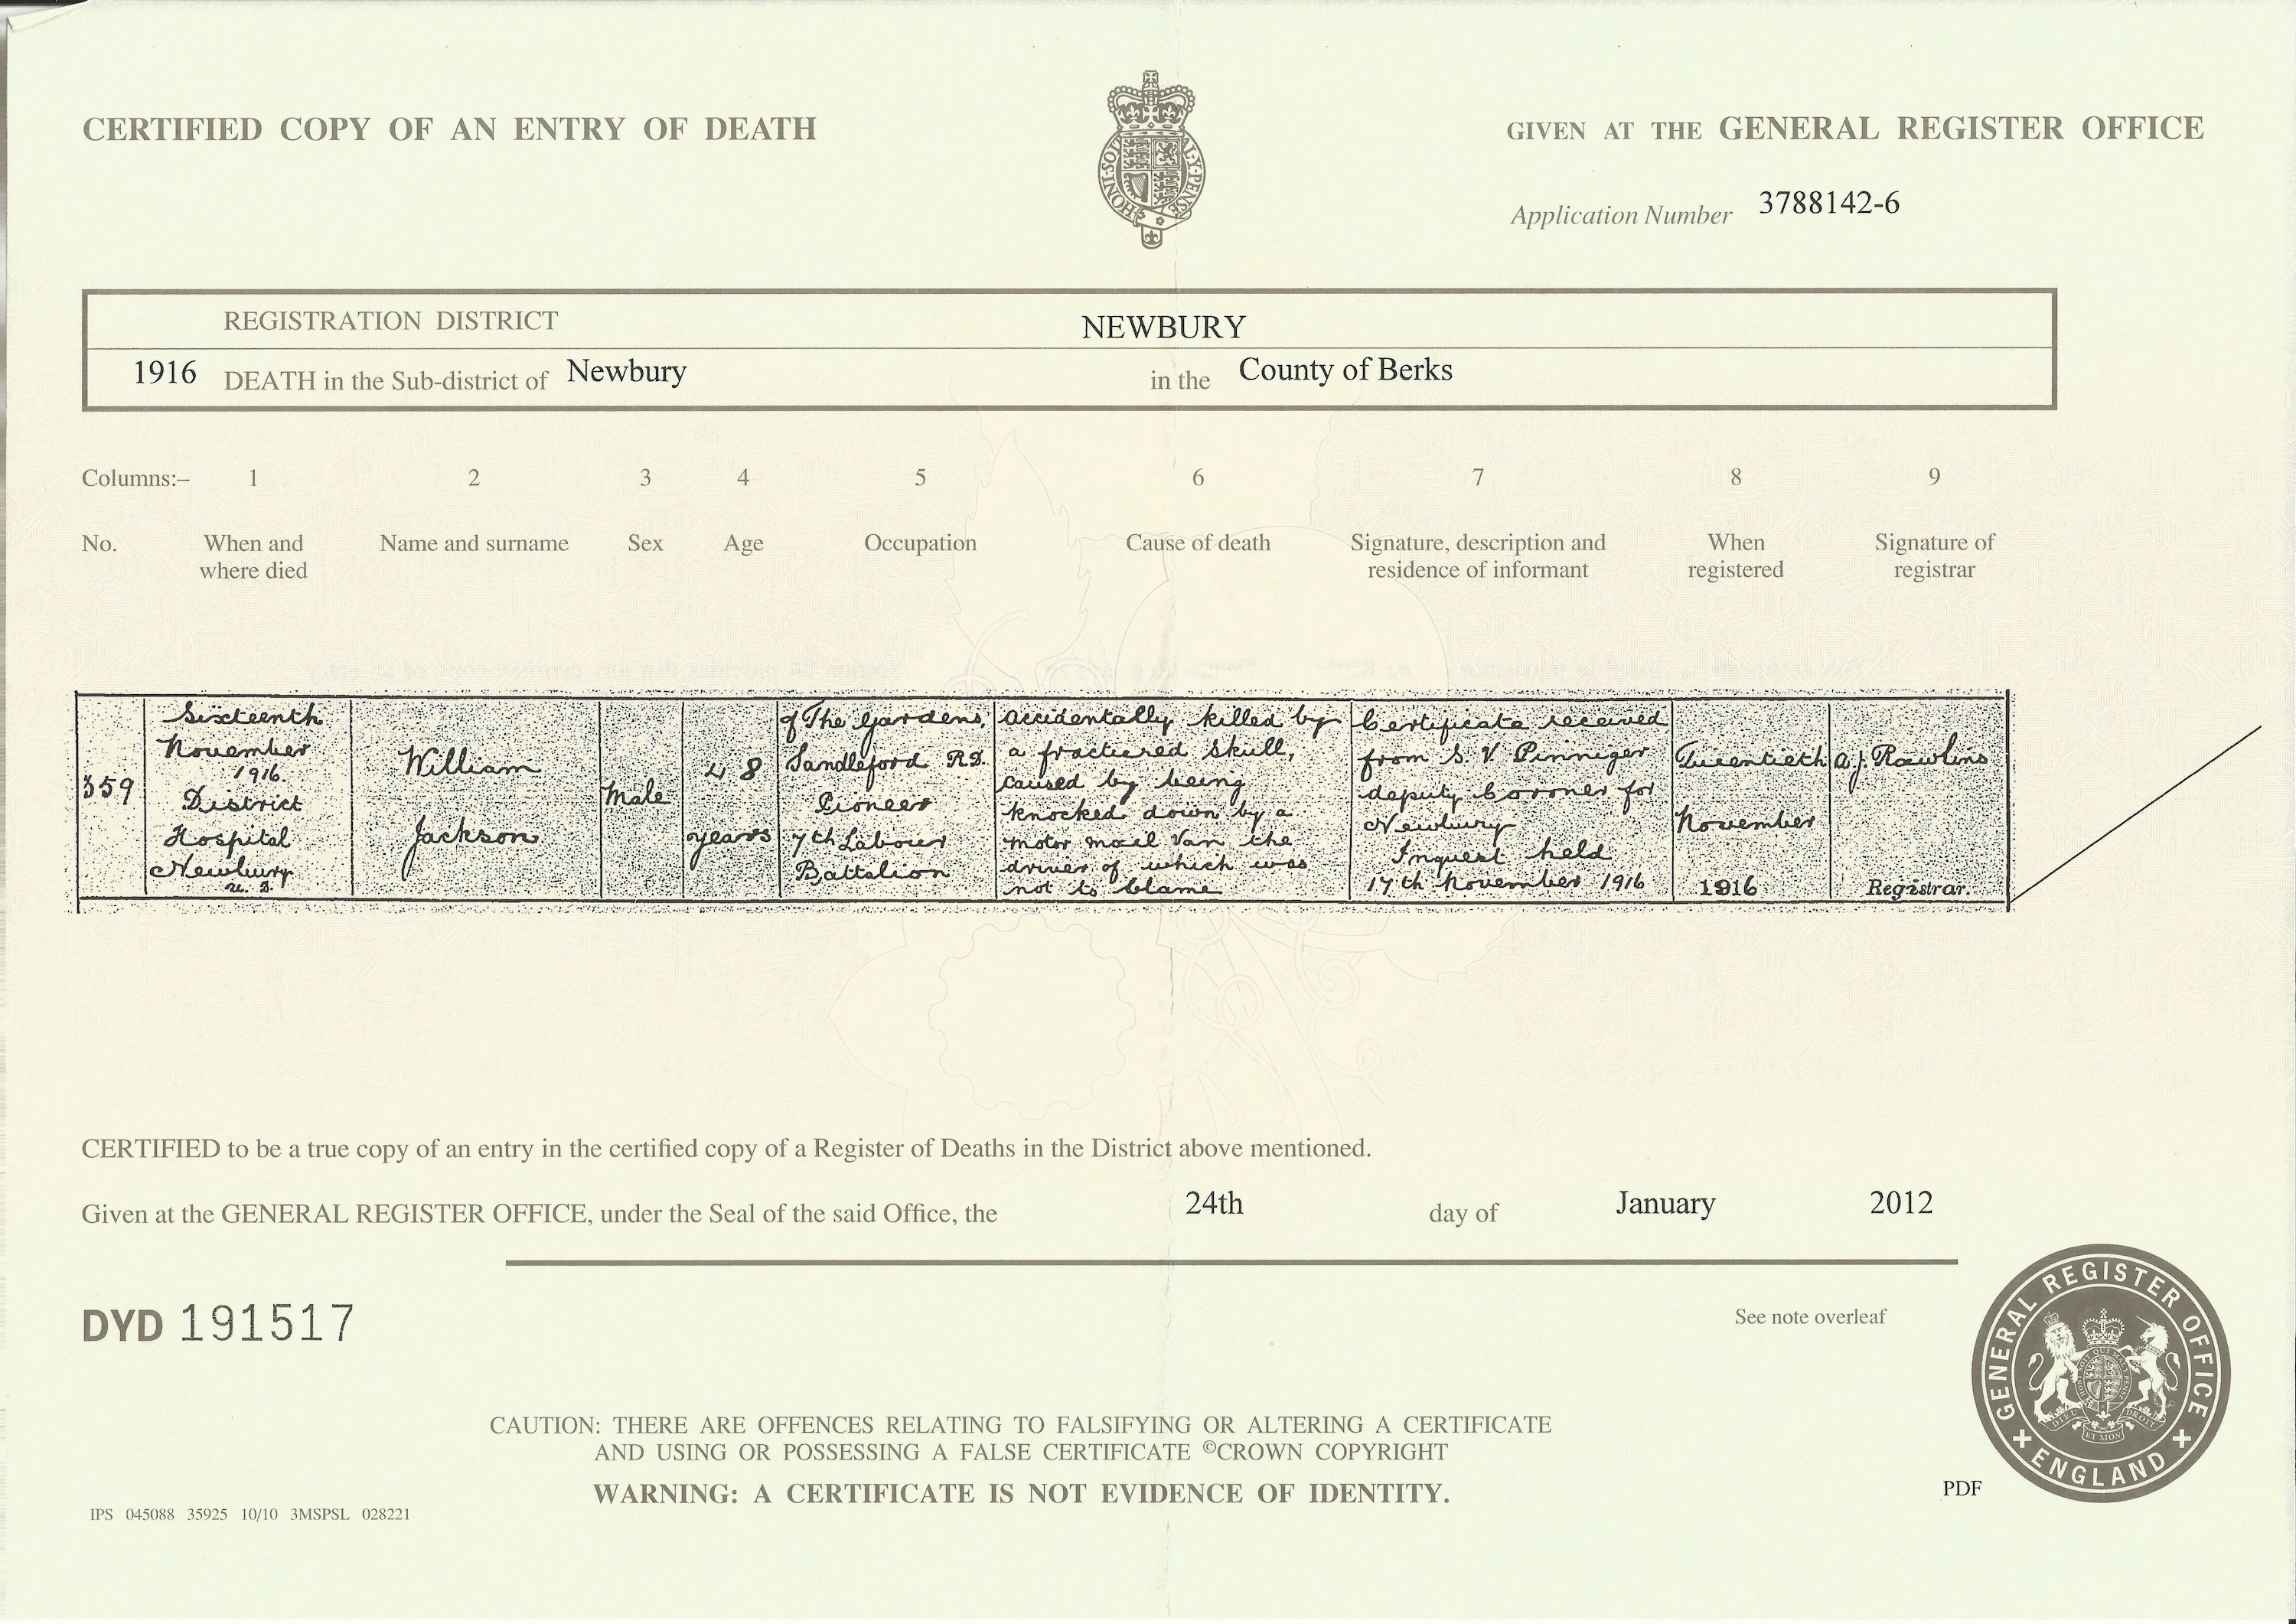 CERTIFIED COPY OF AN ENTRY OF DEATH
GIVEN AT THE GENERAL REGISTER OFFICE
HONI·SOIT
Y·PENSE
Application Number 3788142-6
REGISTRATION DISTRICT NEWBURY
1916 DEATH in the Sub-district of Newbury in the County of Berks
Columns:– 1 2 3 4 5 6 7 8 9
No.
When and
where died
Name and surname
Sex
Age
Occupation
Cause of death
Signature, description and
residence of informant
When
registered
Signature of
registrar
359
Sixteenth
November
1916.
District
Hospital
Newbury
William
Jackson
Male
48
years
of The Gardens,
Sandleford RD.
Pioneer
7th Labour
Battalion
Accidentally killed by
a fractured skull,
caused by being
knocked down by a
motor mail van the
driver of which was
not to blame
Certificate received
from S. V. Pinniger
deputy Coroner for
Newbury
Inquest held
17th November 1916
Twentieth
November
1916
A.J. Rawlins
Registrar.
CERTIFIED to be a true copy of an entry in the certified copy of a Register of Deaths in the District above mentioned.
Given at the GENERAL REGISTER OFFICE, under the Seal of the said Office, the 24th day of January 2012
DYD 191517
See note overleaf
GENERAL REGISTER OFFICE
ENGLAND
DIEU ET MON DROIT
CAUTION: THERE ARE OFFENCES RELATING TO FALSIFYING OR ALTERING A CERTIFICATE
AND USING OR POSSESSING A FALSE CERTIFICATE ©CROWN COPYRIGHT
WARNING: A CERTIFICATE IS NOT EVIDENCE OF IDENTITY.
PDF
IPS 045088 35925 10/10 3MSPSL 028221